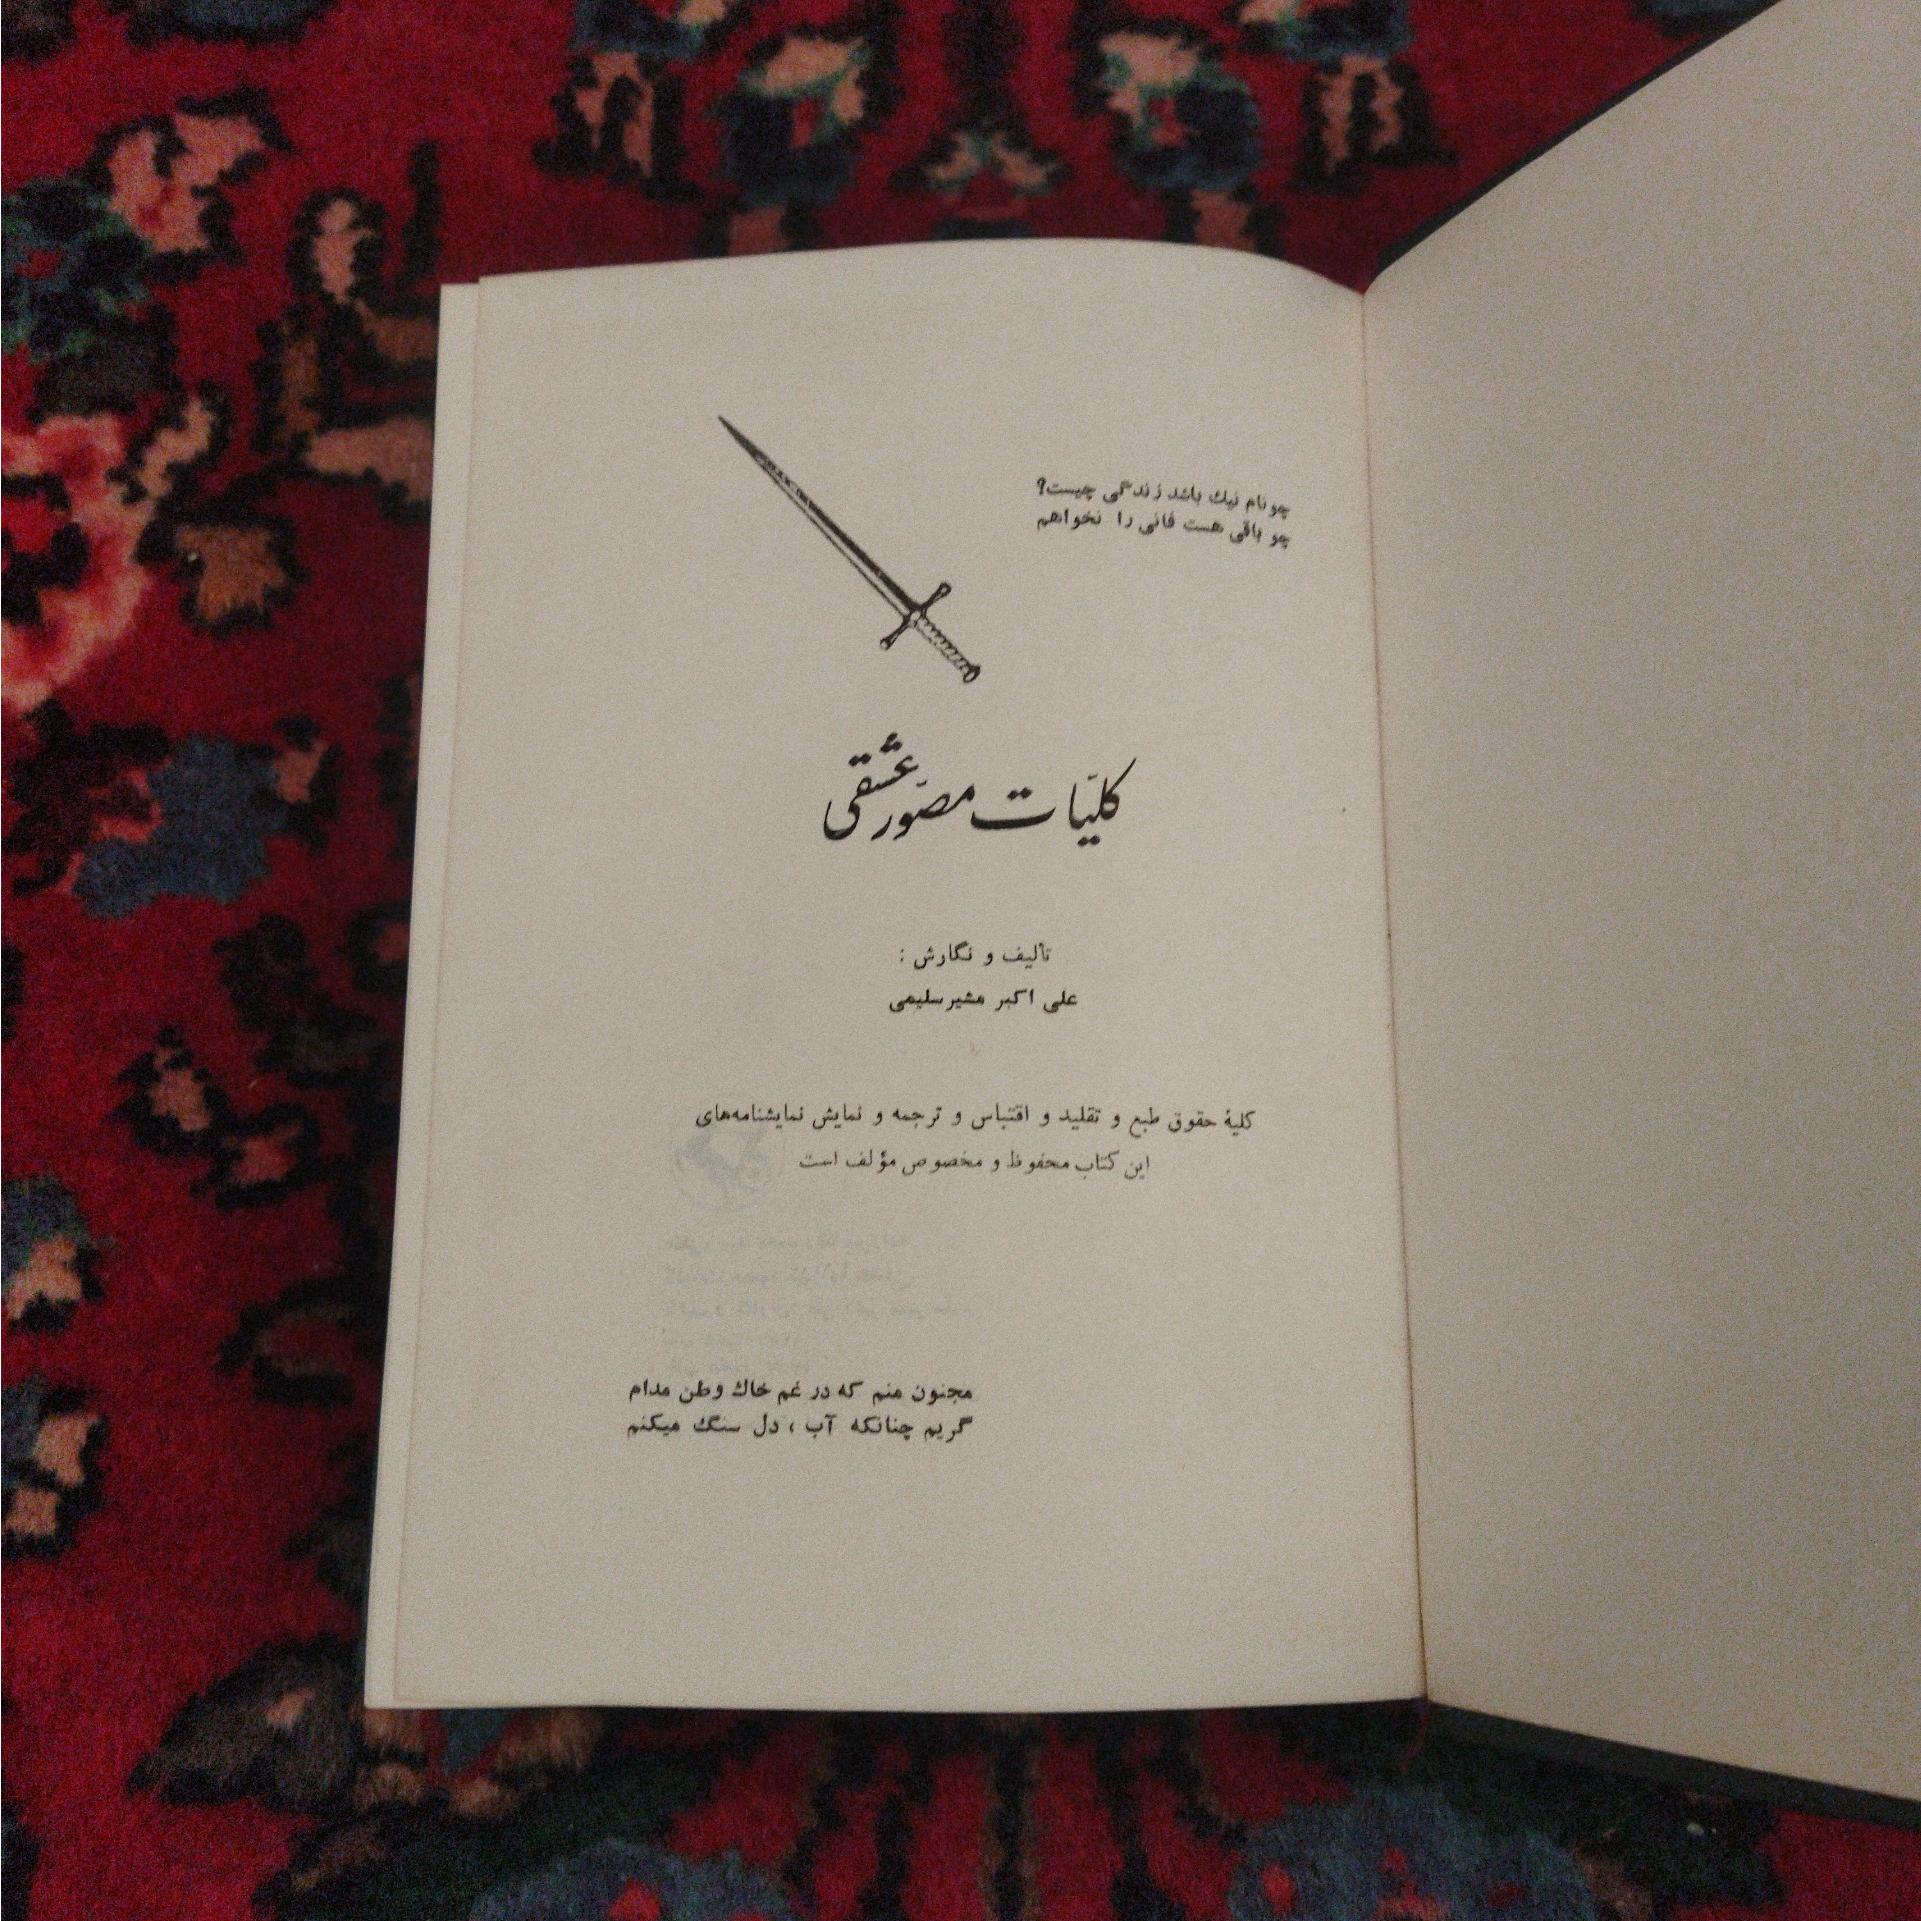 چو نام نیك باشد زندگی چیست؟
چو باقی هست فانی را نخواهم
کلیّات مصوّر عشقی
تألیف و نگارش :
علی اکبر مشیرسلیمی
کلیهٔ حقوق طبع و تقلید و اقتباس و ترجمه و نمایش نمایشنامه‌های
این کتاب محفوظ و مخصوص مؤلف است
مجنون منم که در غم خاك وطن مدام
گریم چنانکه آب ، دل سنگ میکنم